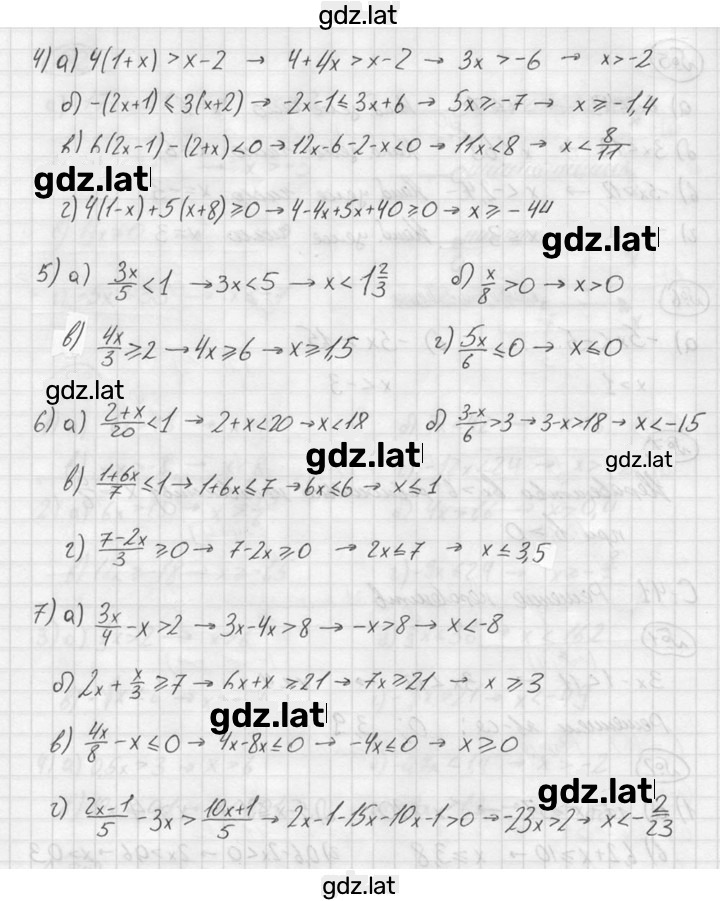 gdz.lat
4) а) 4(1+x) > x-2 → 4+4x > x-2 → 3x > -6 → x > -2
б) -(2x+1) ≤ 3(x+2) → -2x-1 ≤ 3x+6 → 5x ≥ -7 → x ≥ -1,4
в) 6(2x-1) - (2+x) < 0 → 12x-6-2-x < 0 → 11x < 8 → x < 8/11
gdz.lat
г) 4(1-x) + 5(x+8) ≥ 0 → 4-4x+5x+40 ≥ 0 → x ≥ -44
gdz.lat
5) а) 3x/5 < 1 → 3x < 5 → x < 1 2/3 б) x/8 > 0 → x > 0
в) 4x/3 ≥ 2 → 4x ≥ 6 → x ≥ 1,5 г) 5x/6 ≤ 0 → x ≤ 0
gdz.lat
6) а) 2+x/20 < 1 → 2+x < 20 → x < 18 б) 3-x/6 > 3 → 3-x > 18 → x < -15
gdz.lat gdz.lat
в) 1+6x/7 ≤ 1 → 1+6x ≤ 7 → 6x ≤ 6 → x ≤ 1
г) 7-2x/3 ≥ 0 → 7-2x ≥ 0 → 2x ≤ 7 → x ≤ 3,5
7) а) 3x/4 - x > 2 → 3x-4x > 8 → -x > 8 → x < -8
б) 2x + x/3 ≥ 7 → 6x+x ≥ 21 → 7x ≥ 21 → x ≥ 3
gdz.lat
в) 4x/8 - x ≤ 0 → 4x-8x ≤ 0 → -4x ≤ 0 → x ≥ 0
gdz.lat
г) 2x-1/5 - 3x > 10x+1/5 → 2x-1-15x-10x-1 > 0 → -23x > 2 → x < -2/23
gdz.lat